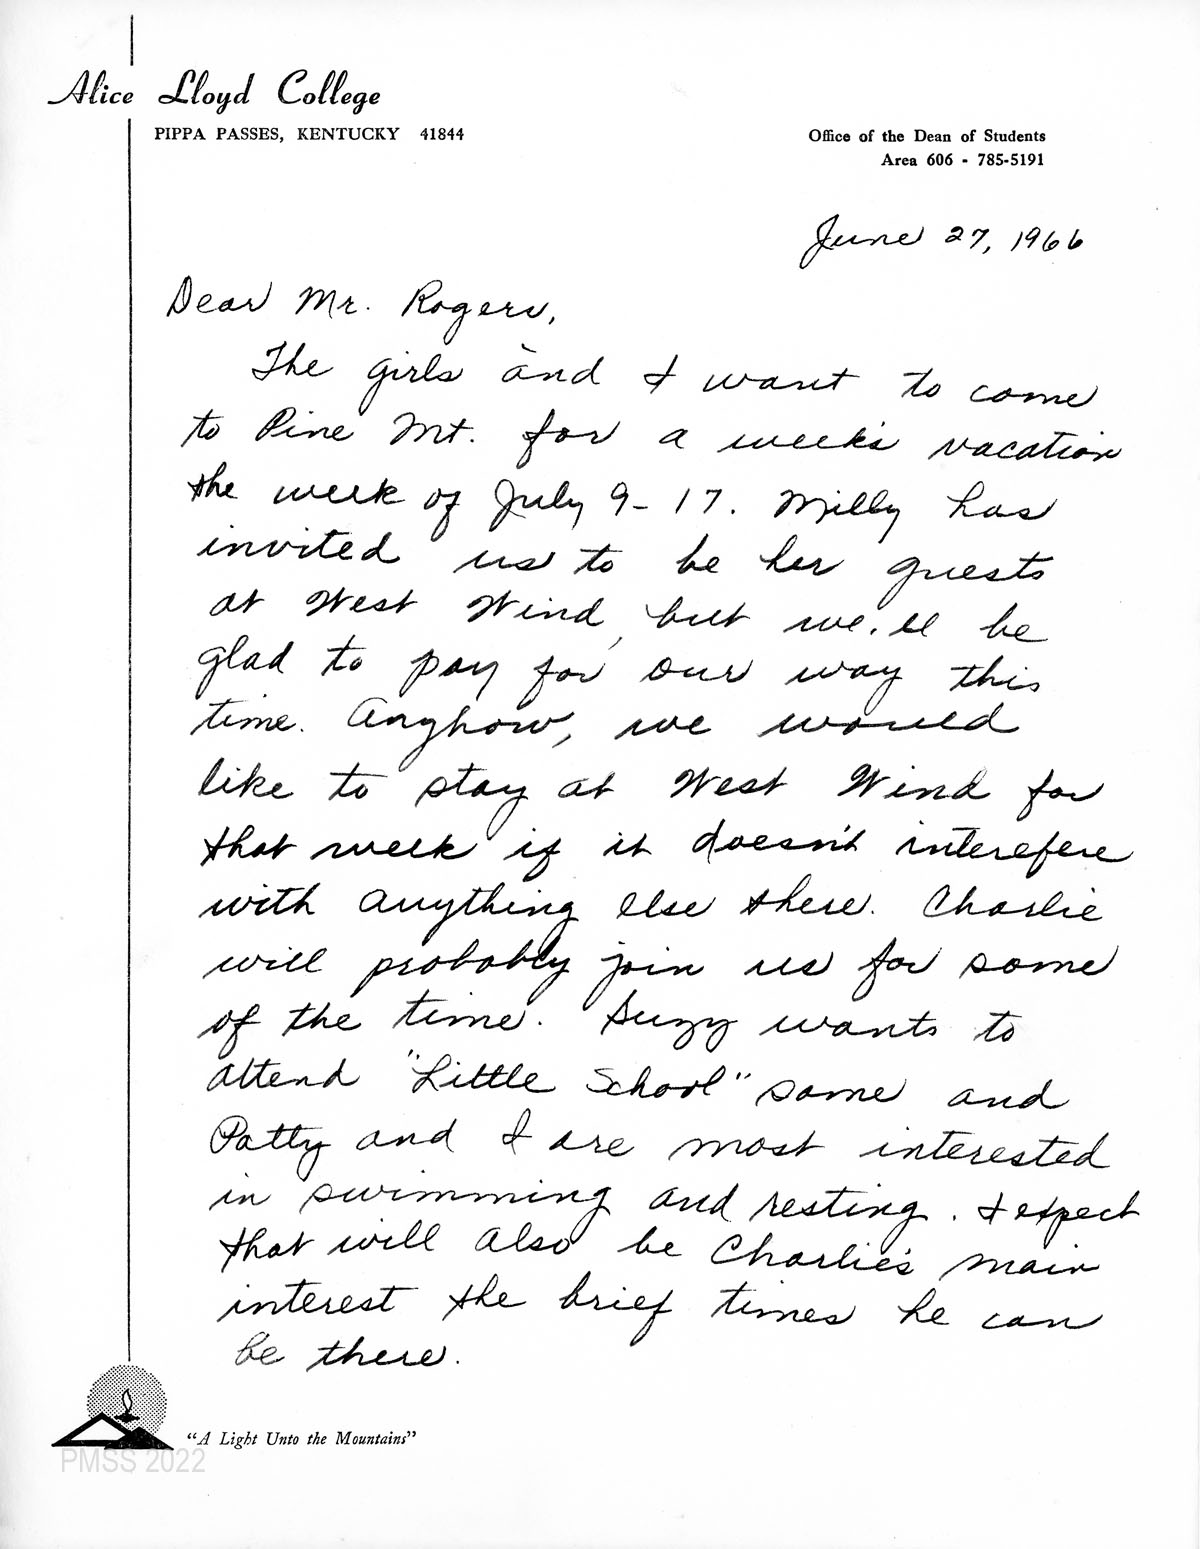 Alice Lloyd College
PIPPA PASSES, KENTUCKY 41844
Office of the Dean of Students
Area 606 - 785-5191
June 27, 1966
Dear Mr. Rogers,
The girls and I want to come
to Pine Mt. for a week's vacation
the week of July 9-17. Milly has
invited us to be her guests
at West Wind, but we'll be
glad to pay for our way this
time. Anyhow, we would
like to stay at West Wind for
that week if it doesn't interefere
with anything else there. Charlie
will probably join us for some
of the time. Suzy wants to
attend "Little School" some and
Patty and I are most interested
in swimming and resting. I expect
that will also be Charlie's main
interest the brief times he can
be there.
"A Light Unto the Mountains"
PMSS 2022